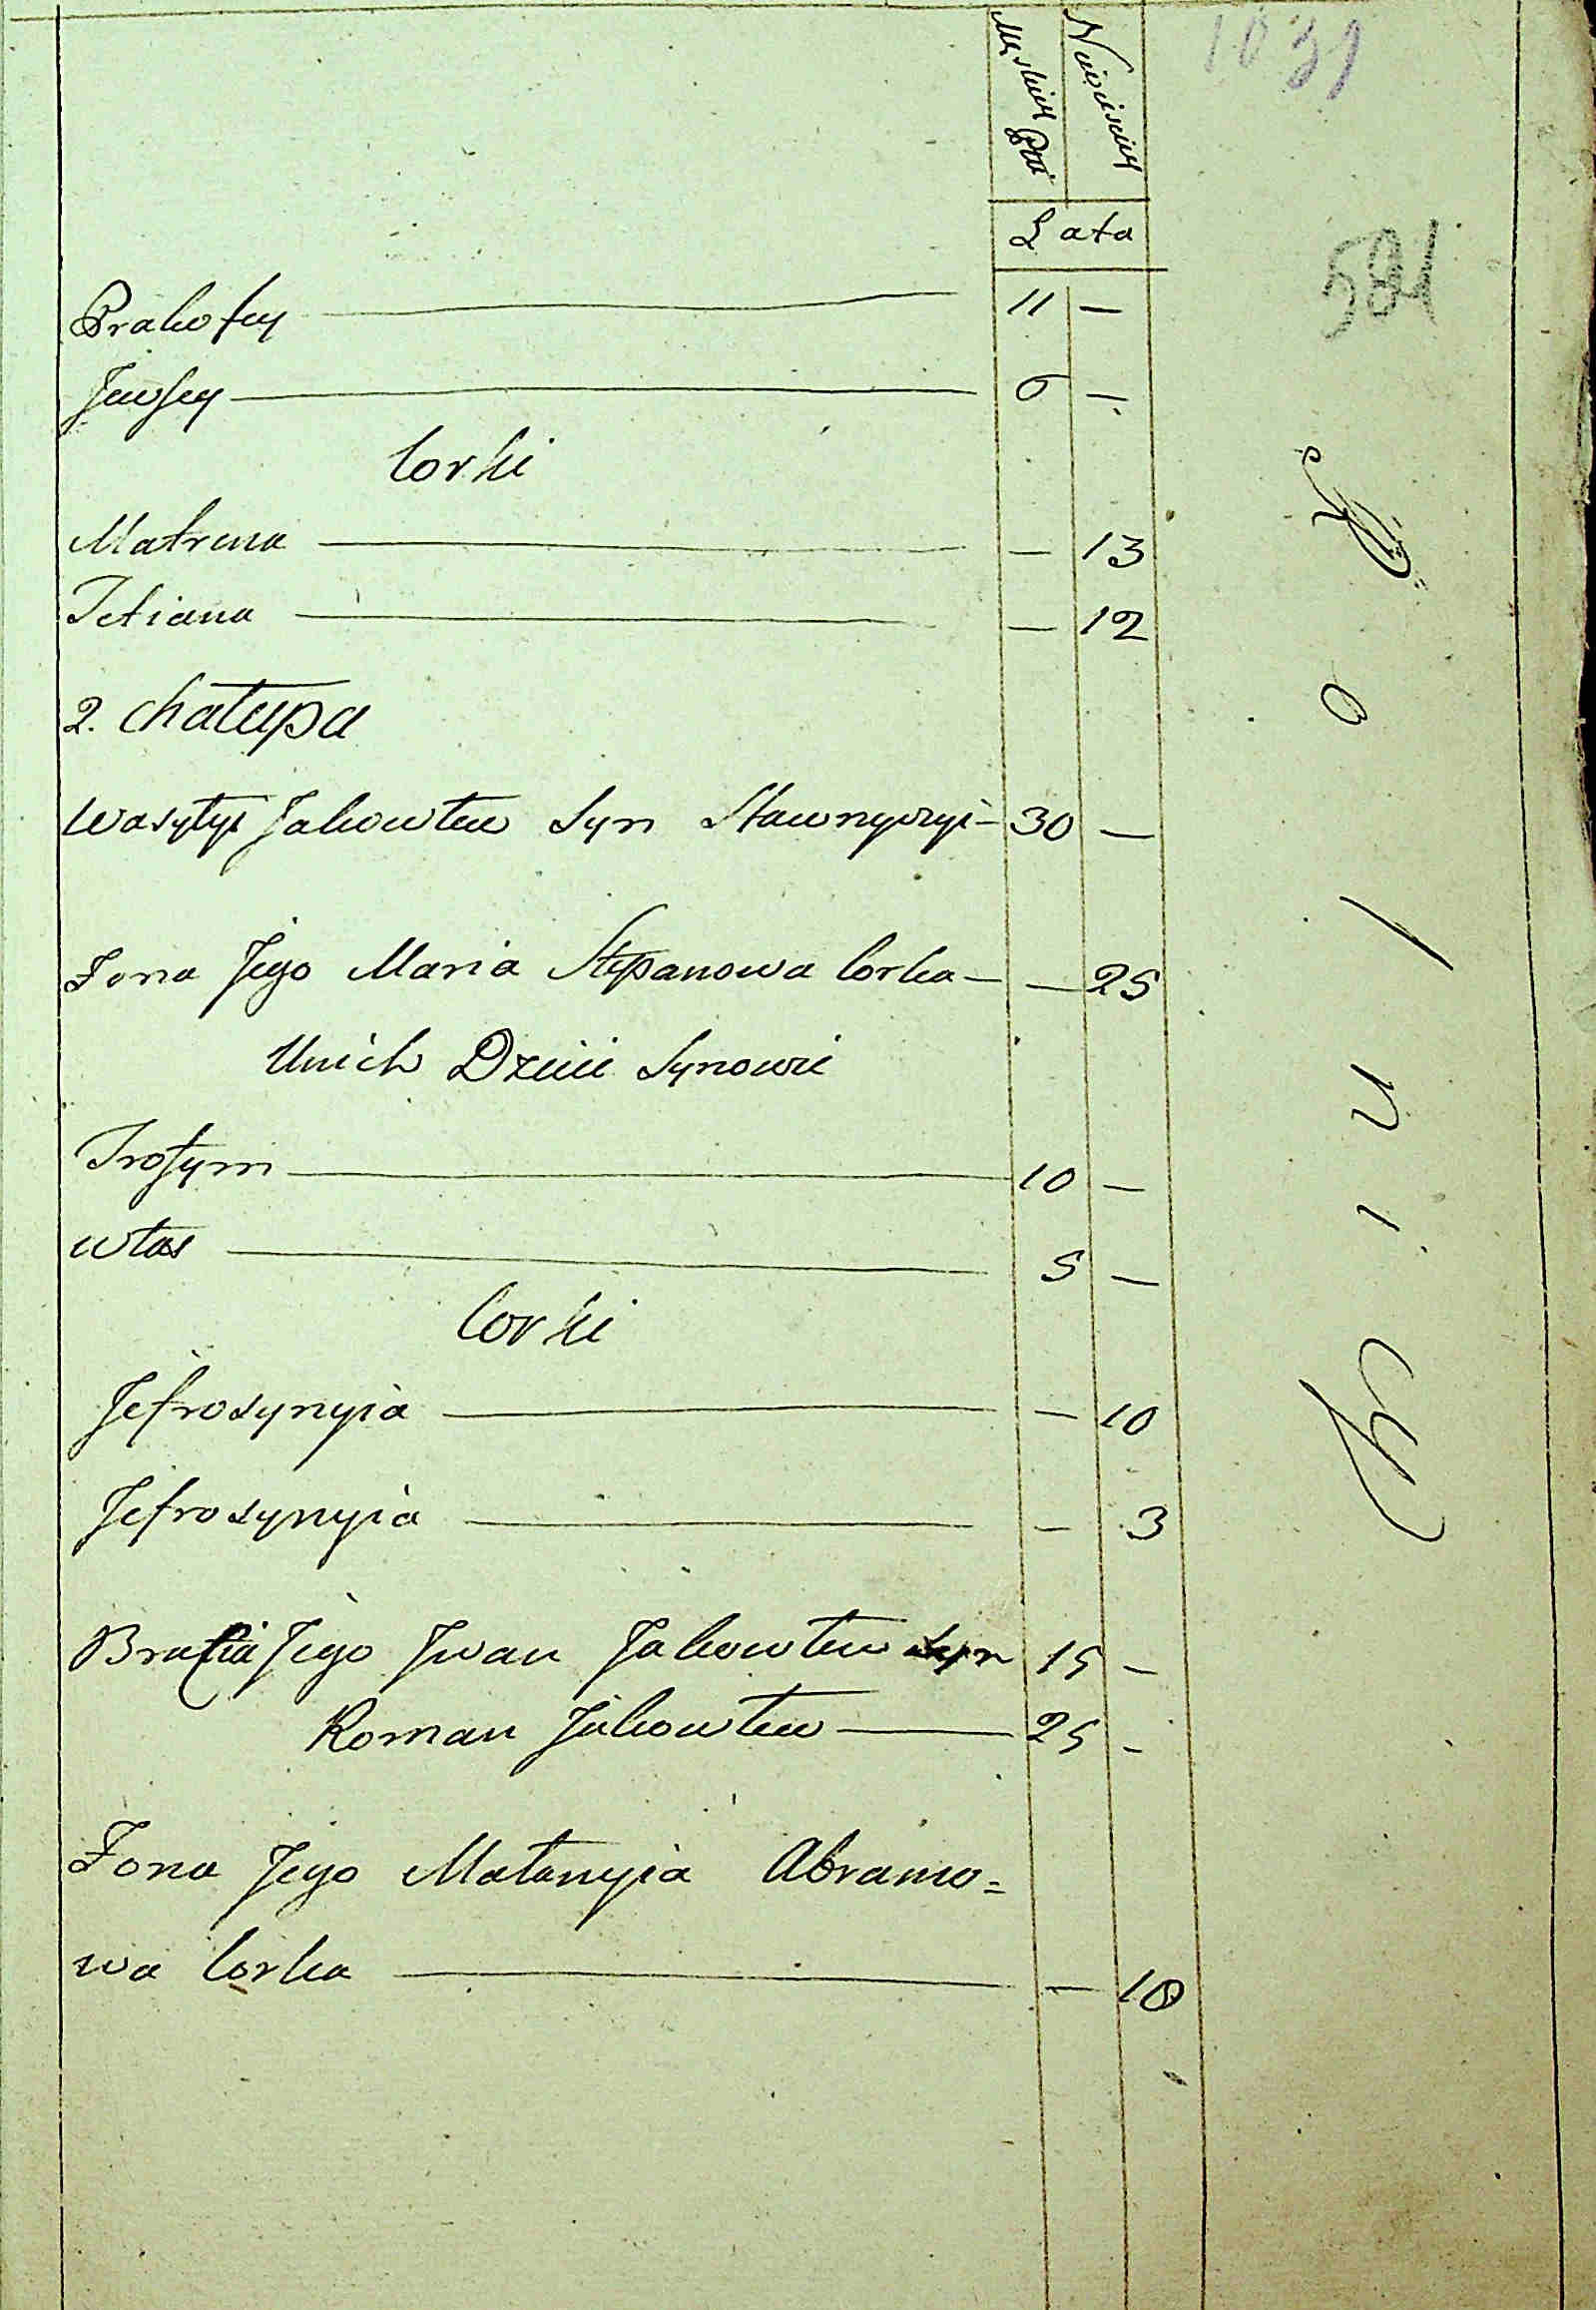 Męskiey Płci
Niewiesciey
1031
Lata
584
Prakofey — 11 —
Jewsey — 6 —
Corki
Matrena — — 13
Tetiana — — 12
2. Chałupa
Wasylyi Jakowlew Syn Stawnyczyi — 30 —
Żona Jego Maria Stepanowa Corka — — 25
Unich Dzieci Synowie
Trofym — 10 —
Włas — 5 —
Corki
Jefrosynyia — — 10
Jefrosynyia — — 3
Bracia Jego Jwan Jakowlew Syn 15 —
Roman Jakowlew — 25 —
Żona Jego Małanyia Abramo=
wa Corka — — 18